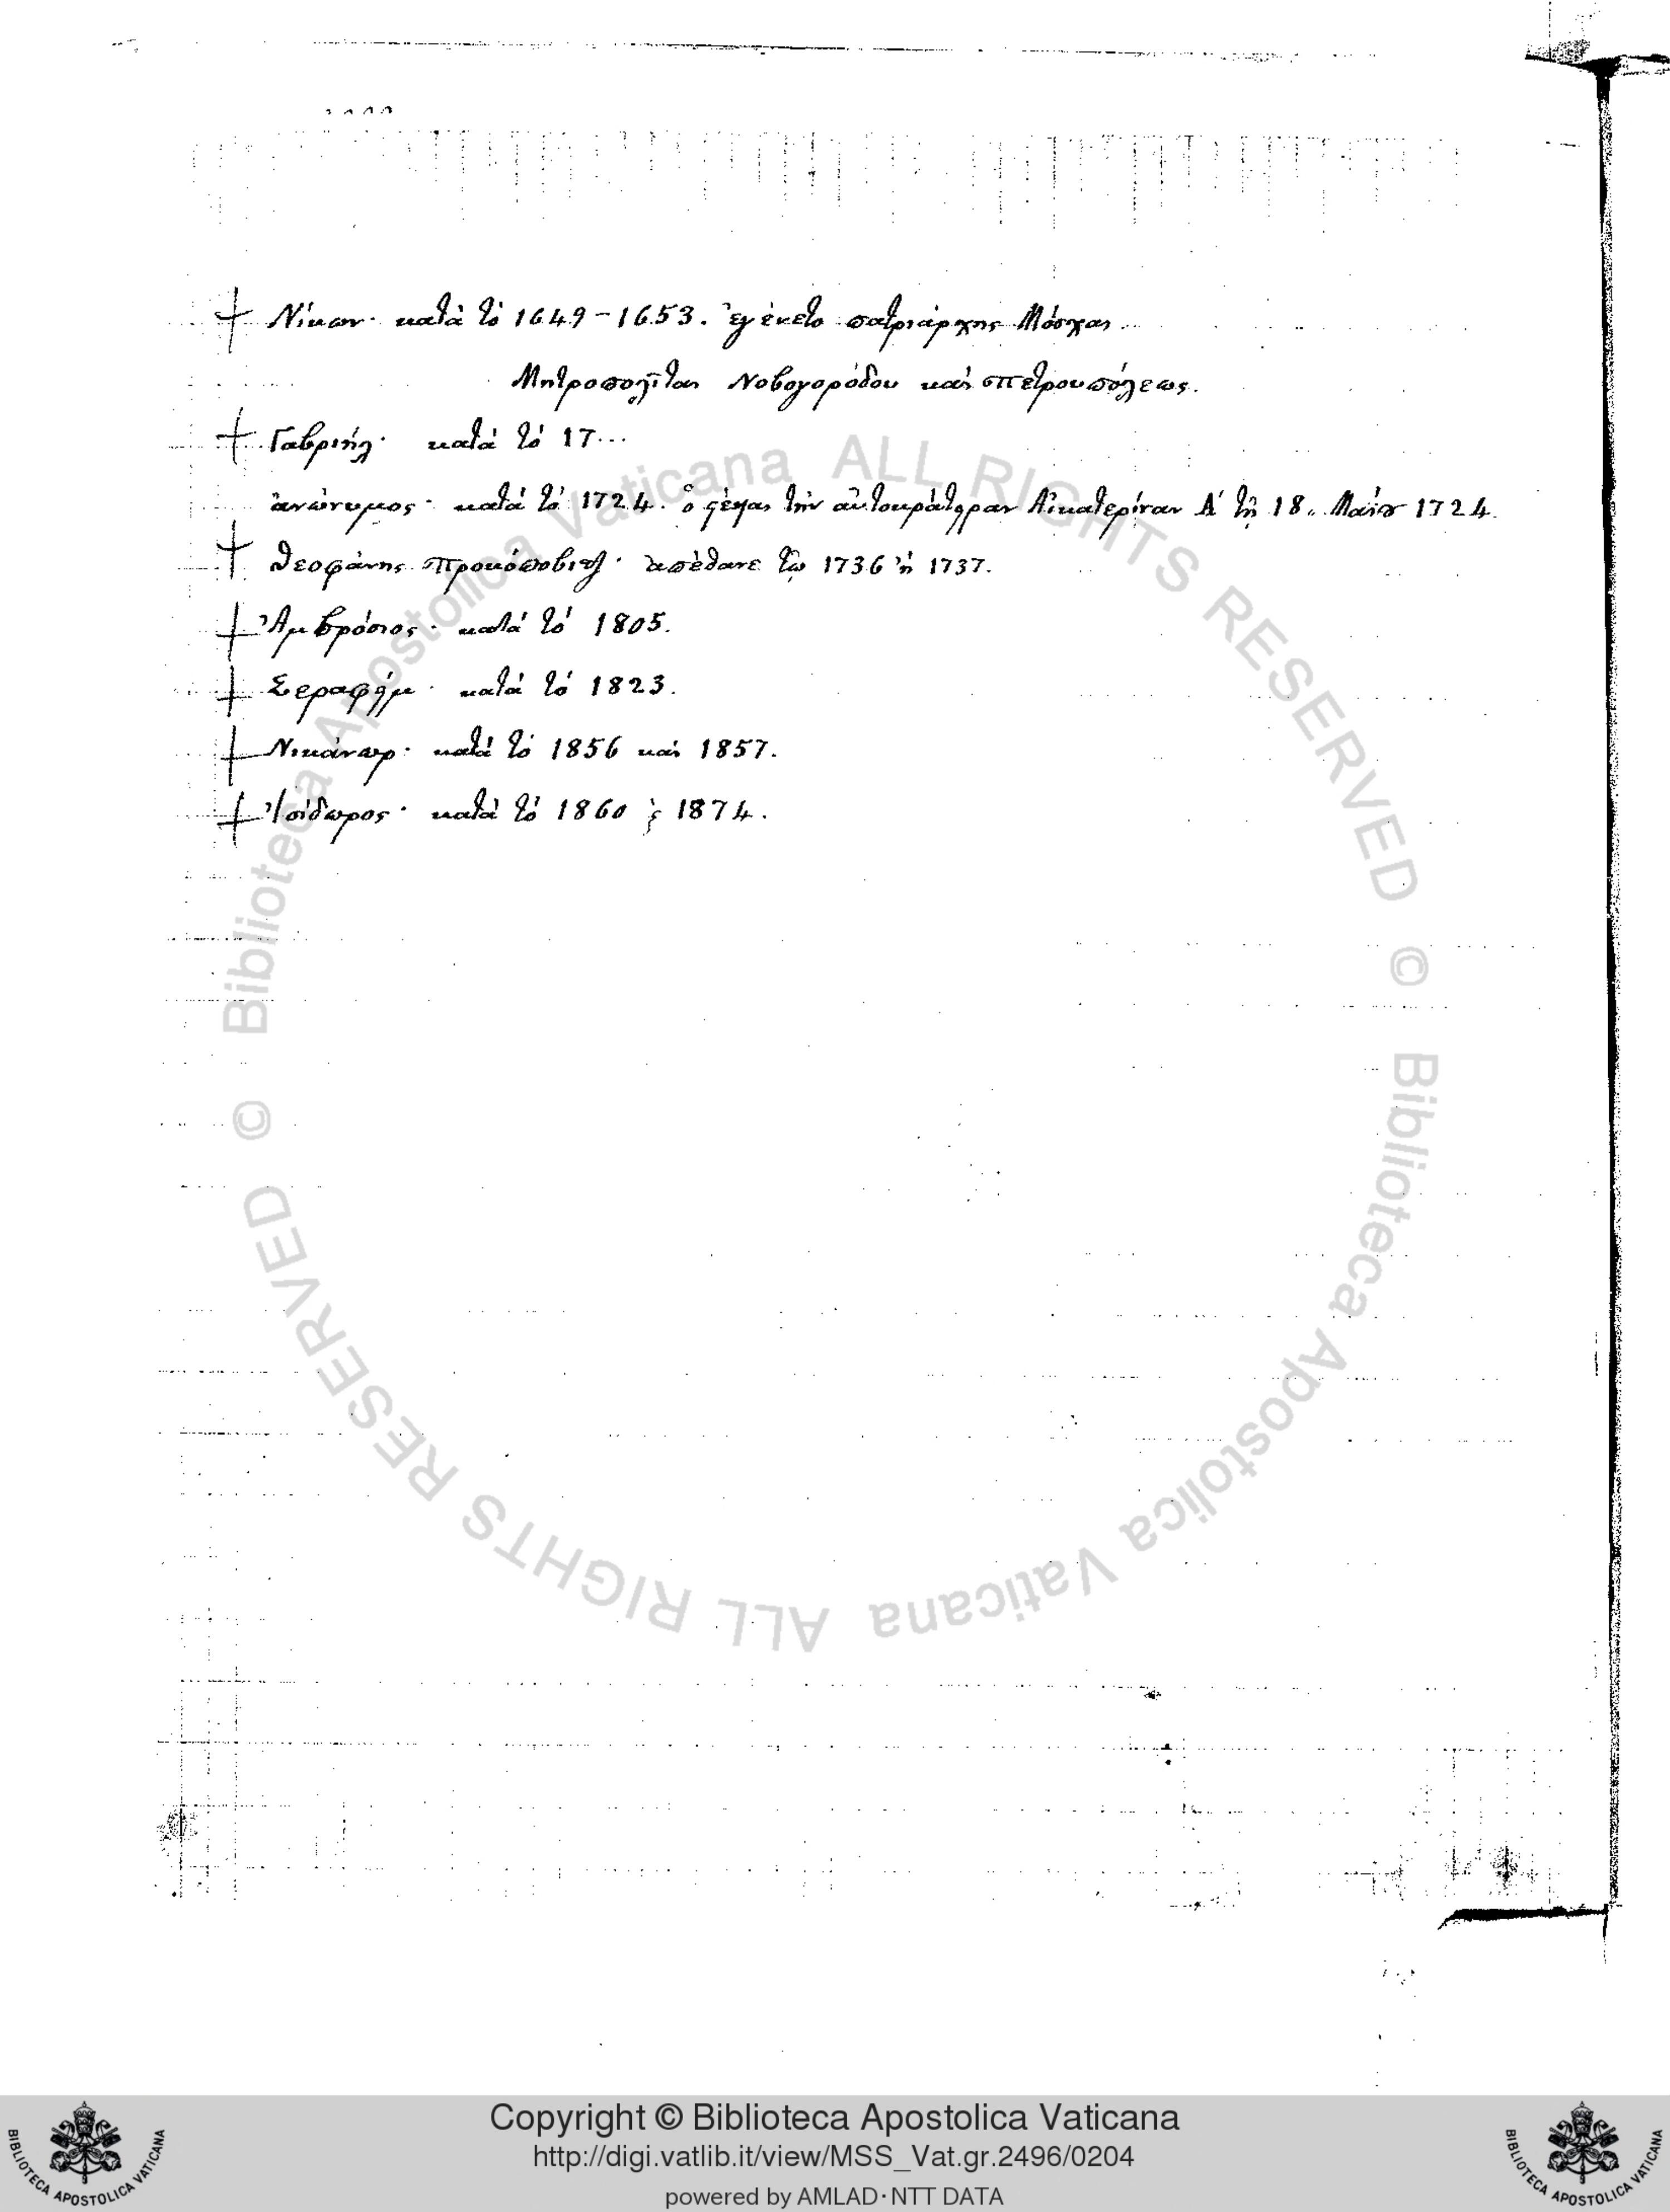 Νίκων· κατὰ τὸ 1649-1653. ἐγένετο πατριάρχης Μόσχας.
Μητροπολῖται Νοβογορόδου καὶ Πετρουπόλεως.
Γαβριήλ· κατὰ τὸ 17...
ἀνώνυμος· κατὰ τὸ 1724. ὁ στέψας τὴν αὐτοκράτορα Αἰκατερίναν Α΄ τῇ 18. Μαΐου 1724.
Θεοφάνης Προκόποβιτζ· ἀπέθανε τῷ 1736 ἢ 1737.
Ἀμβρόσιος· κατὰ τὸ 1805.
Σεραφήμ· κατὰ τὸ 1823.
Νικάνωρ· κατὰ τὸ 1856 καὶ 1857.
Ἰσίδωρος· κατὰ τὸ 1860 ϗ 1874.
© Biblioteca Apostolica Vaticana ALL RIGHTS RESERVED
© Biblioteca Apostolica Vaticana ALL RIGHTS RESERVED
Copyright © Biblioteca Apostolica Vaticana
http://digi.vatlib.it/view/MSS_Vat.gr.2496/0204
powered by AMLAD·NTT DATA
BIBLIOTECA APOSTOLICA VATICANA
BIBLIOTECA APOSTOLICA VATICANA